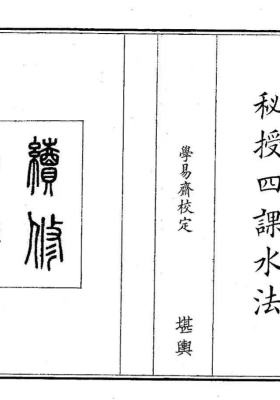 秘授四課水法
學易齋校定 堪輿
續修